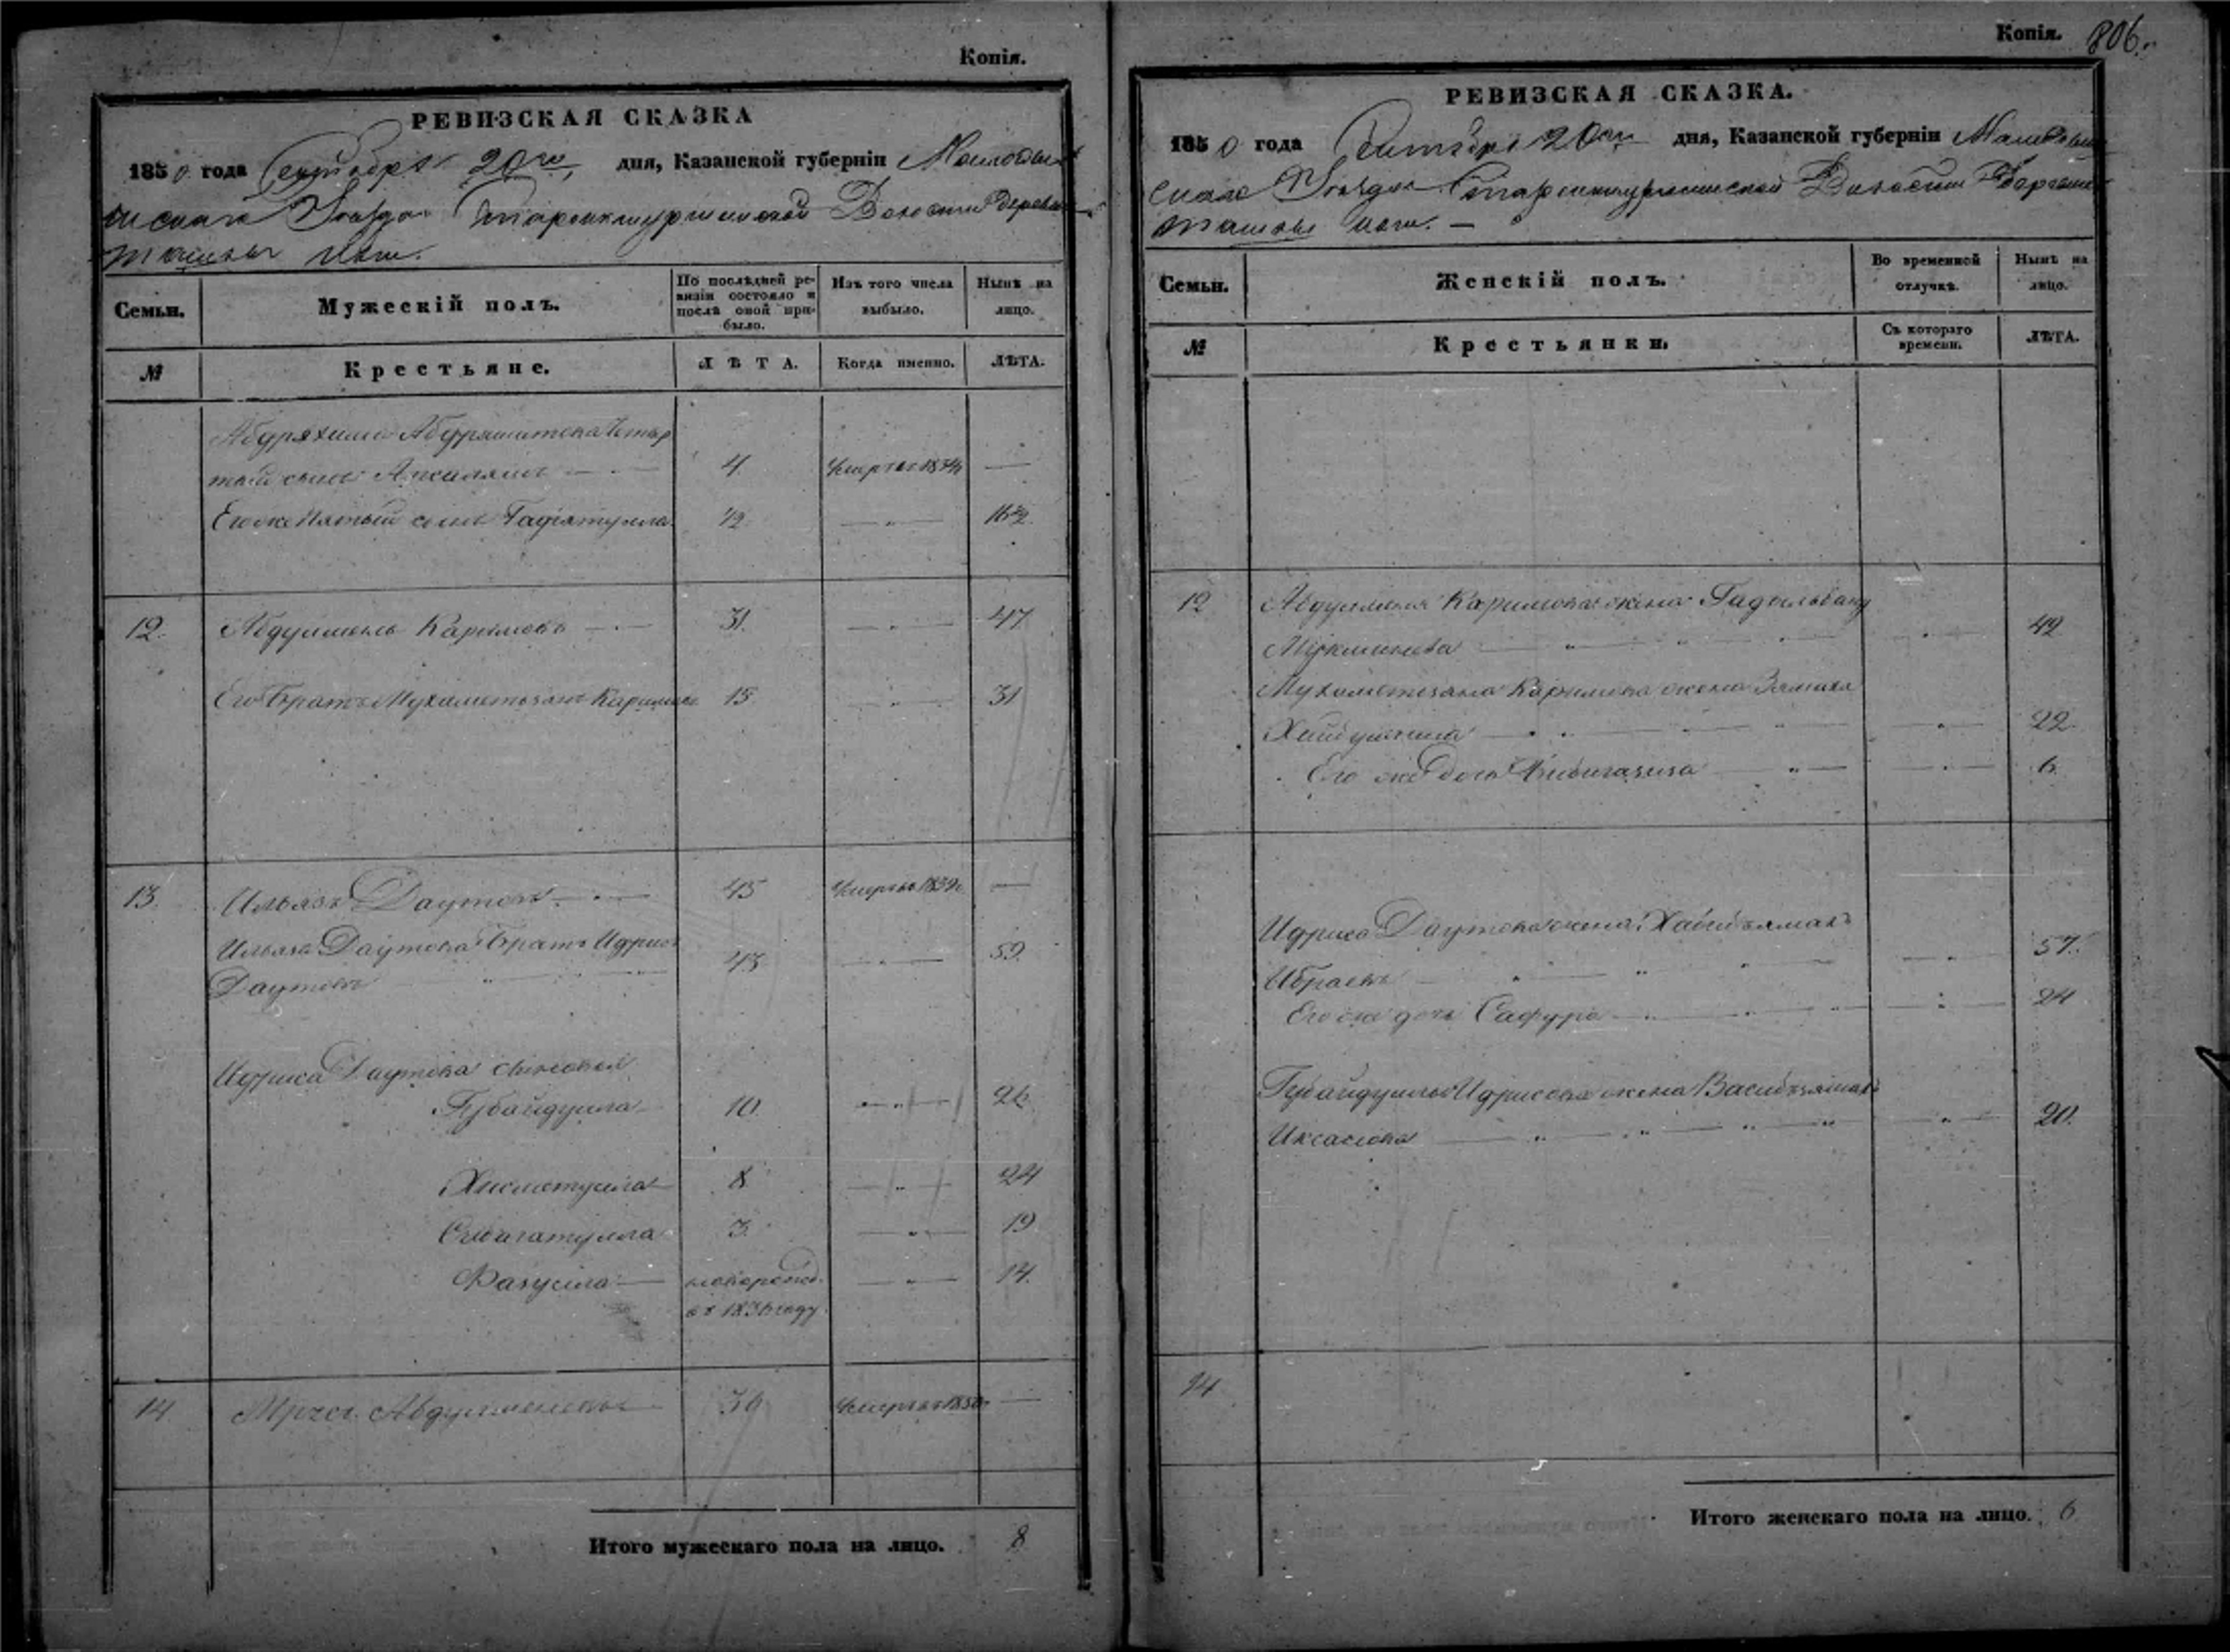 Копія.
РЕВИЗСКАЯ СКАЗКА
1850 года Сентября 20го дня, Казанской губерніи Мамадыш
скаго Уезда Волости деревни
Семьи.
Мужескій полъ.
По послѣдней ревизіи состояло и послѣ оной прибыло.
Изъ того числа выбыло.
Нынѣ на лицо.
№
Крестьяне.
ЛѢТА.
Когда именно.
ЛѢТА.
Абдряхима Абдряшитова четвер
тый сынъ 4. Умеръ въ
Его же пятый сынъ Гадіятулла 1/2 — " — 16 1/2
12. Абдулмень Каримовъ — 31. — " — 47
Его братъ Мухаметьзанъ Каримовъ 15 — " — 31
13. Ильязъ Даутовъ — 45 Умеръ въ —
Ильяза Даутова братъ Идрисъ
Даутовъ 43 — " — 59.
Идриса Даутова сыновья
Губайдулла 10. — " — 26
Хисметулла 8 — " — 24
Сибагатулла 3. — " — 19
Фазулла — новорожд. — " — 14.
въ 1836 году.
14 Абдулменевъ 36 Умеръ въ 1850 —
Итого мужескаго пола на лицо. 8
Копія. 806.
РЕВИЗСКАЯ СКАЗКА.
1850 года Октября 20го дня, Казанской губерніи Мамадыш
скаго Уезда Волости Деревни
Семьи.
Женскій полъ.
Во временной отлучкѣ.
Нынѣ на лицо.
№
Крестьянки.
Съ котораго времени.
ЛѢТА.
12 Абдулменя Каримова жена
Мукминева — " — 42
Мухаметьзана Каримова жена Замиха
Хайбуллина — " — 22.
Его же дочь Бибигазиза — " — 6.
Идриса Даутова жена Хабибзямалъ
Ибраевъ — " — 57.
Его же дочь Сафура — " — 24
Губайдуллы Идрисова жена Васибзямалъ
Иксанова — " — 20.
14
Итого женскаго пола на лицо. 6